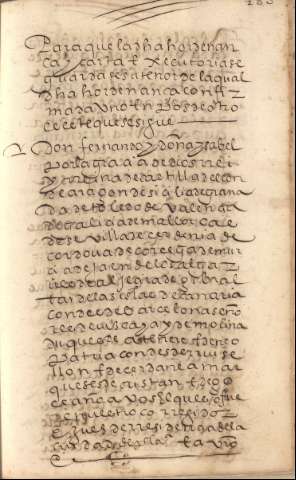 Para que la dha hordenan
ça y carta executoria se
guarde a tenor de la qual
dha hordenança confir
mada uno en pos de otro
es este que se sigue
Don fernando y doña ysabel
por la graçia de dios rei
y rreina de castilla de leon
de aragon de siçilia de grana
da de toledo de valençia
de galiçia de mallorcas
de sevilla de çerdenia de
cordova de corçega de murçi
a de jaen de los algar
ves de algezira de gibral
tar de las islas de canaria
condes de barcelona seño
res de vizcaya y de molina
duques de atenas e de neo
patria condes de rruise
llon e de cerdania mar
queses de oristan e de goçe
ano a vos el que es o fuere
corregidor
juez de rresidençia de la
çiudad de